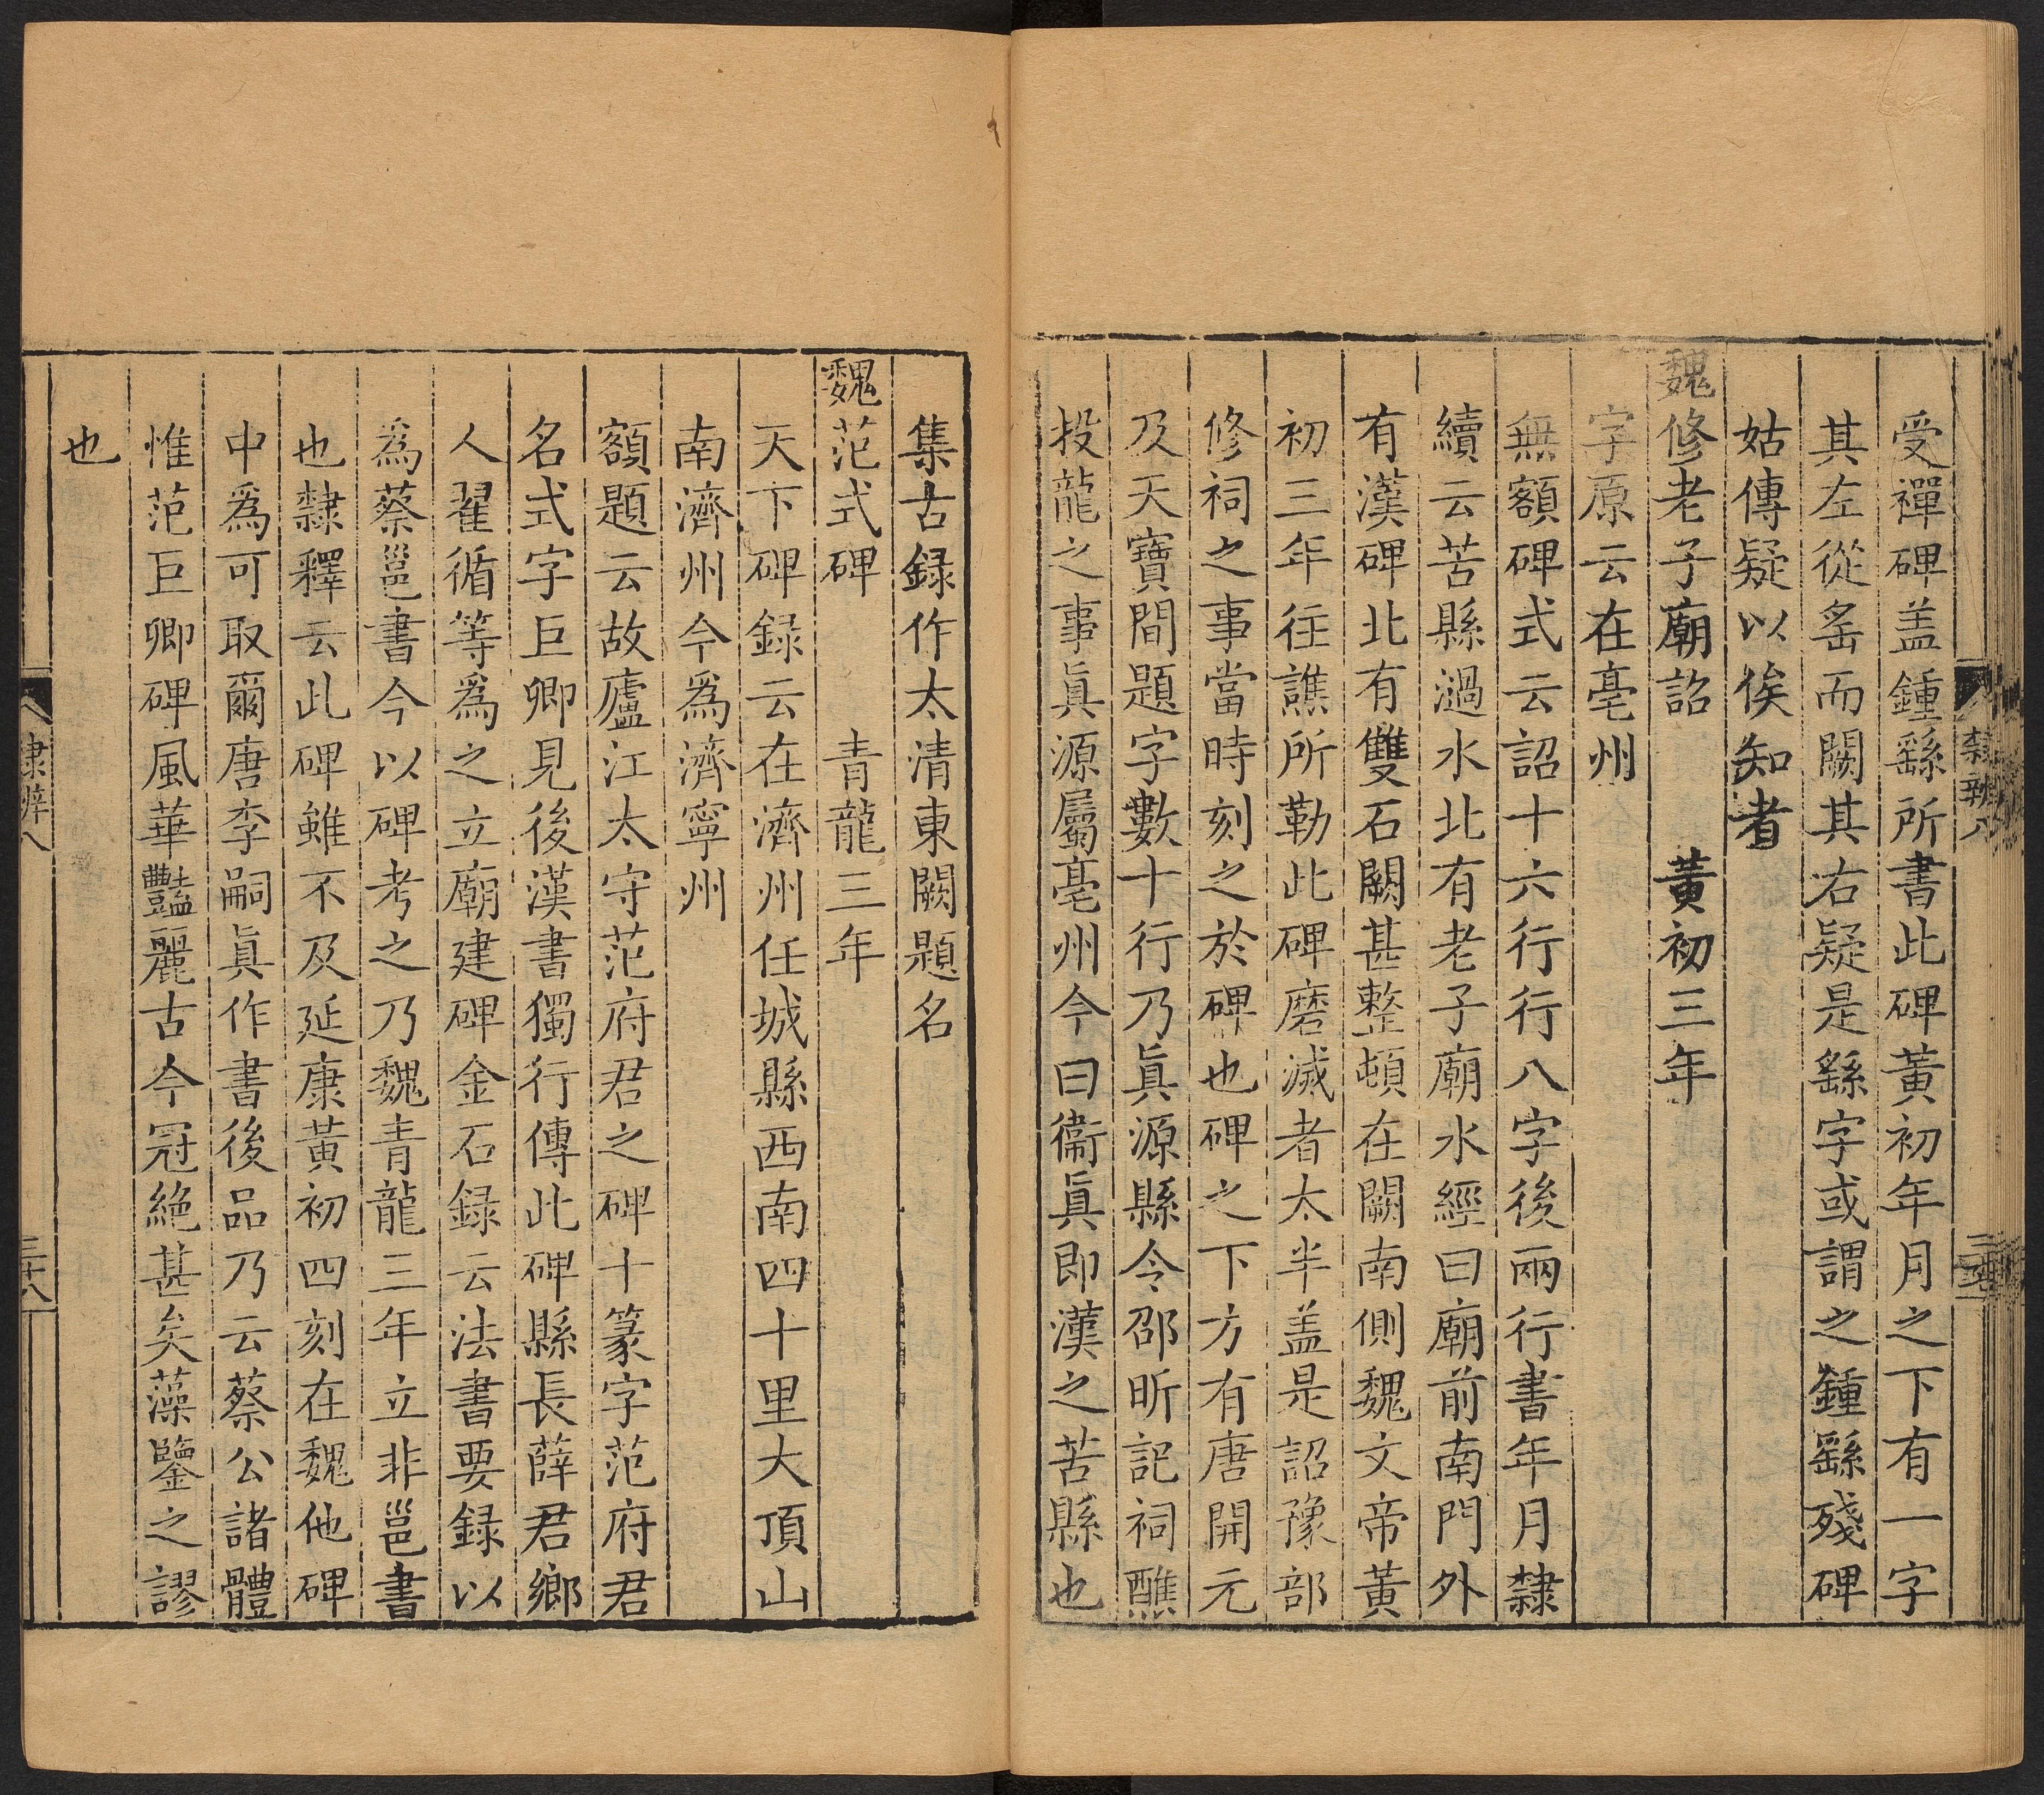 受禪碑盖鍾繇所書此碑黃初年月之下有一字
其左從䍃而闕其右疑是繇字或謂之鍾繇殘碑
姑傳疑以俟知者
魏修老子廟詔 黃初三年
字原云在亳州
無額碑式云詔十六行行八字後兩行書年月隸
續云苦縣濄水北有老子廟水經曰廟前南門外
有漢碑北有雙石闕甚整頓在闕南側魏文帝黃
初三年往譙所勒此碑磨滅者太半盖是詔豫部
修祠之事當時刻之於碑也碑之下方有唐開元
及天寶間題字數十行乃眞源縣令邵昕記祠醮
投龍之事眞源屬亳州今曰衞眞即漢之苦縣也
集古録作太清東闕題名
魏范式碑 青龍三年
天下碑録云在濟州任城縣西南四十里大頂山
南濟州今爲濟寧州
額題云故廬江太守范府君之碑十篆字范府君
名式字巨卿見後漢書獨行傳此碑縣長薛君鄉
人翟循等爲之立廟建碑金石録云法書要録以
為蔡邕書今以碑考之乃魏青龍三年立非邕書
也隸釋云此碑雖不及延康黃初四刻在魏他碑
中爲可取爾唐李嗣眞作書後品乃云蔡公諸體
惟范巨卿碑風華豔麗古今冠絶甚矣藻鑒之謬
也
隸辨八
三十八